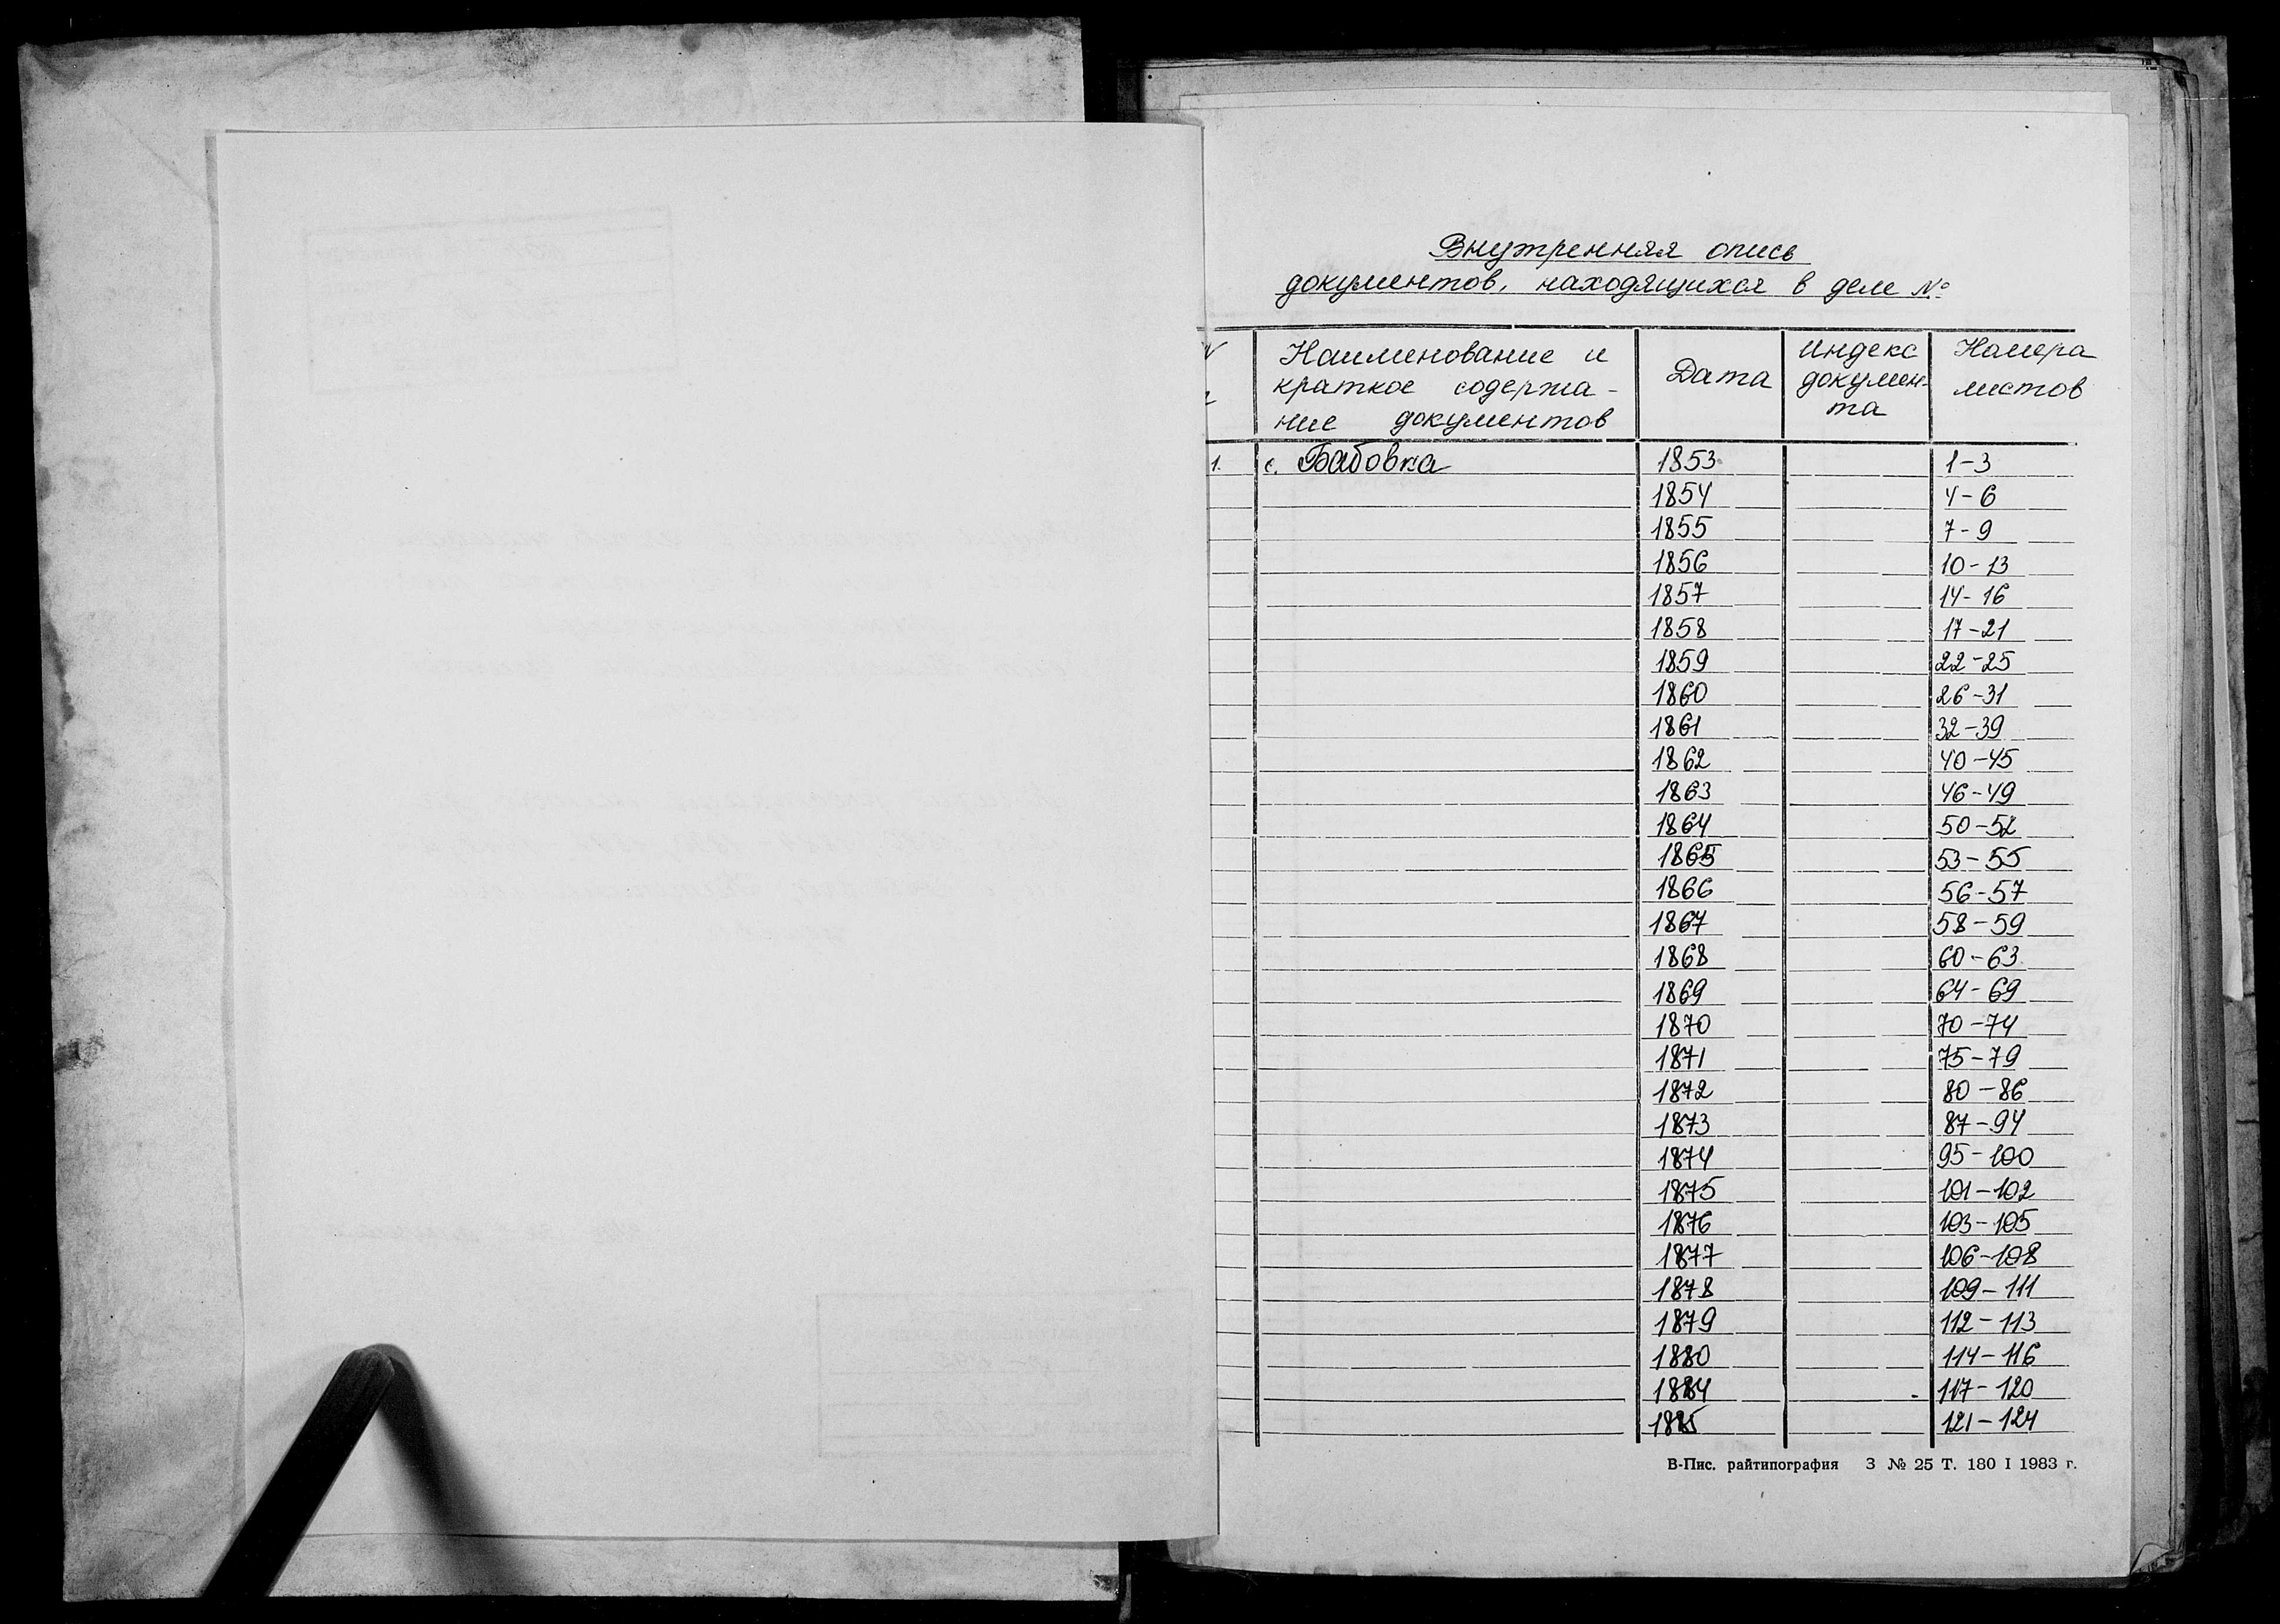 Внутренняя опись
документов, находящихся в деле №
Наименование и краткое содержа-ние документов | Дата | Индекс докумен-та | Номера листов
1. с. Бабовка 1853 1-3
1854 4-6
1855 7-9
1856 10-13
1857 14-16
1858 17-21
1859 22-25
1860 26-31
1861 32-39
1862 40-45
1863 46-49
1864 50-52
1865 53-55
1866 56-57
1867 58-59
1868 60-63
1869 64-69
1870 70-74
1871 75-79
1872 80-86
1873 87-94
1874 95-100
1875 101-102
1876 103-105
1877 106-108
1878 109-111
1879 112-113
1880 114-116
1884 117-120
1885 121-124
В-Пис. райтипография 3 № 25 Т. 180 I 1983 г.